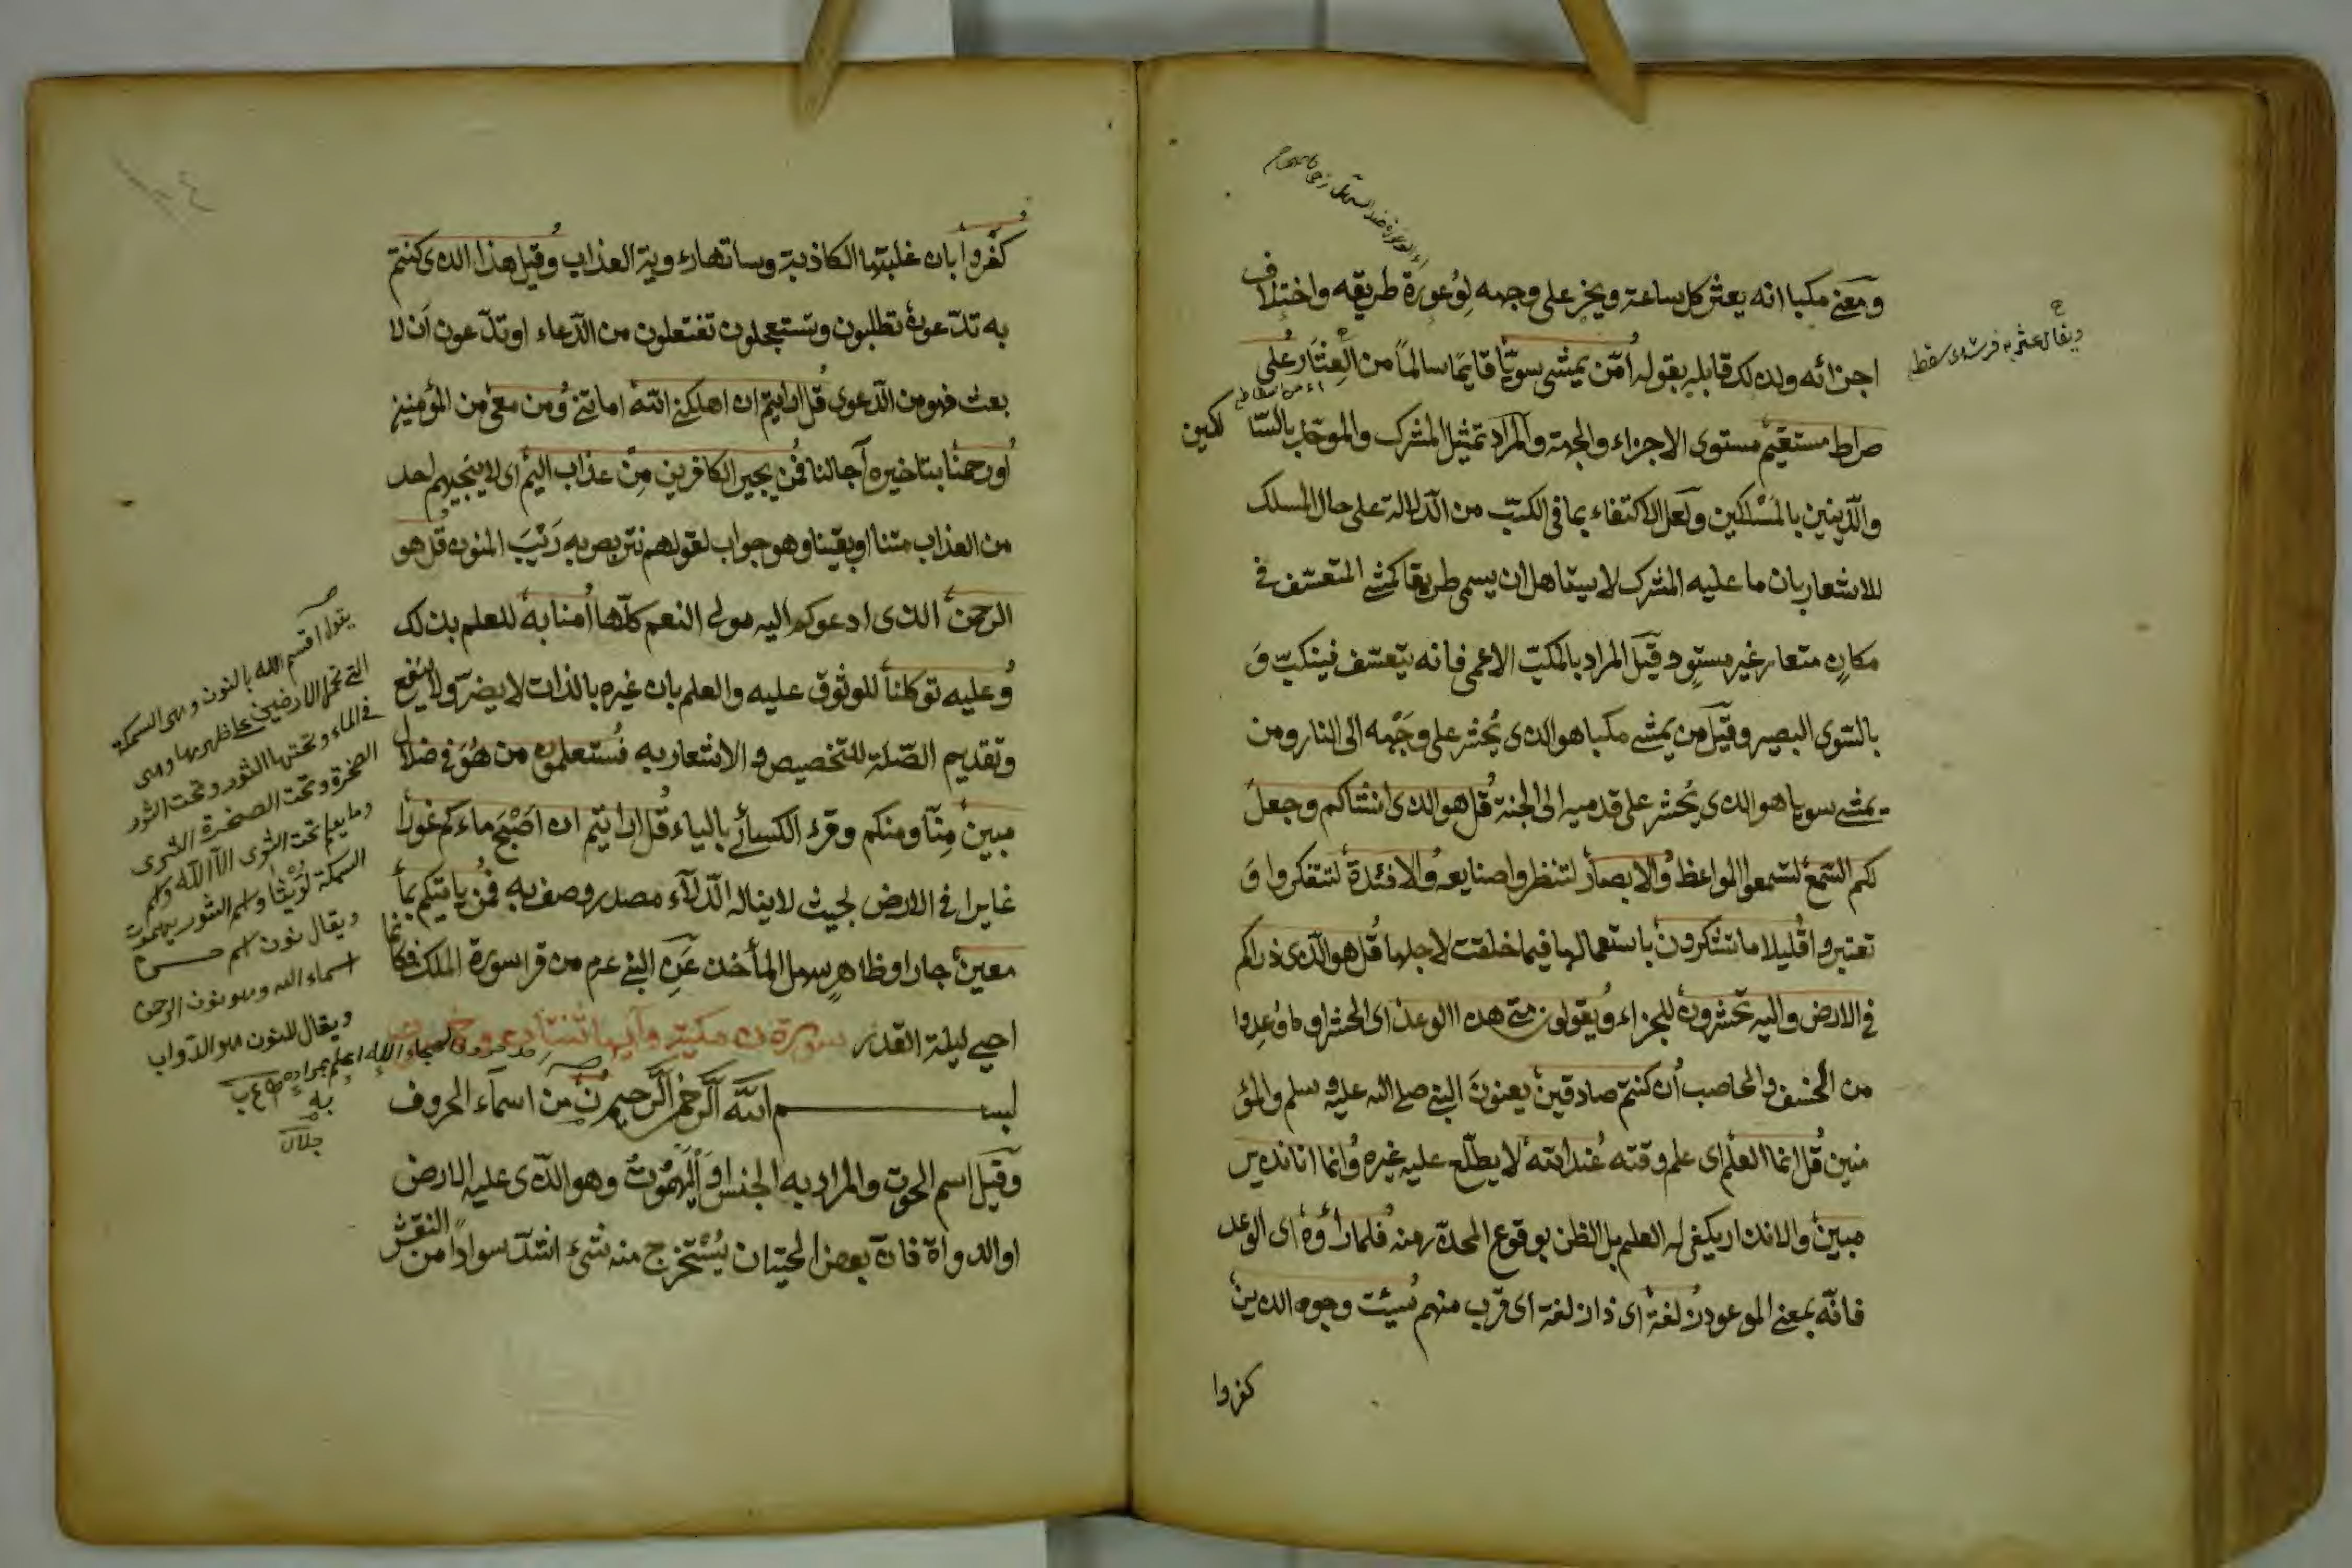 ومعنى مكبا انه يعثر كل ساعة ويخر على وجهه لوعورة طريقه واختلاف
اجزائه ولذلك قابله بقوله امن يمشي سويا قايما سالما من العثار على
صراط مستقيم مستوى الاجزاء والجهة والمراد تمثيل المشرك والموحد بالسالكين
والدينين بالمسلكين ولعل الاكتفاء بما فى الكب من الدلالة على حال المسلك
للاشعار بان ما عليه المشرك لا يستاهل ان يسمى طريقا كمشى المتعسف فى
مكان متعاد غير مستو وقيل المراد بالمكب الاعمى فانه يتعسف فينكب و
بالسوى البصير وقيل من يمشى مكبا هو الذى يحشر على وجهه الى النار ومن
يمشى سويا هو الذى يحشر على قدميه الى الجنة قل هو الذى انشاكم وجعل
لكم السمع لتسمعوا المواعظ والابصار لتنظروا صنايعه والافئدة لتتفكروا و
تعتبروا قليلا ما تشكرون باستعمالها فيما خلقت لاجلها قل هو الذى ذراكم
فى الارض واليه تحشرون للجزاء ويقولون متى هذا الوعد اى الحشر او ما وعدوا
من الخسف والحاصب ان كنتم صادقين يعنون النبى صلى الله عليه وسلم والمؤ
منين قل انما العلم اى علم وقته عند الله لا يطلع عليه غيره وانما انا نذير
مبين والانذار يكفى له العلم بل الظن بوقوع المحذر منه فلما راوه اى الوعد
فانه بمعنى الموعود زلفة اى ذا زلفة اى قرب منهم سيئت وجوه الذين
كفروا
ويقال عثر به فرسه سقط
كفروا بان غلبتها الكابة وساتها رؤية العذاب وقيل هذا الذى كنتم
به تدعون تطلبون وتستعجلون تفتعلون من الدعاء او تدعون ان لا
بعث فهو من الدعوى قل ارايتم ان اهلكنى الله اماتنى ومن معى من المؤمنين
او رحمنا بتاخير آجالنا فمن يجير الكافرين من عذاب اليم اى لا ينجيهم احد
من العذاب متنا او بقينا وهو جواب لقولهم نتربص به ريب المنون قل هو
الرحمن الذى ادعوكم اليه مولى النعم كلها امنا به للعلم بذلك
وعليه توكلنا للوثوق عليه والعلم بان غيره بالذات لا يضر ولا ينفع
وتقديم الصلة للتخصيص والاشعار به فستعلمون من هو فى ضلال
مبين منا ومنكم وقرء الكسائى بالياء قل ارايتم ان اصبح ماءكم غورا
غايرا فى الارض بحيث لا يناله الدلاء مصدر وصف به فمن ياتيكم بماء
معين جار او ظاهر سهل المأخذ عن النبى عم من قرا سورة الملك فكانما
احيى ليلة القدر سورة ن مكية وآيها ثنتان وخمسون
بسم الله الرحمن الرحيم ن من اسماء الحروف
وقيل اسم الحوت والمراد به الجنس او البهموت وهو الذى عليه الارض
او الدواة فان بعض الحيتان يستخرج منه شىء اشد سوادا من النقش
يقول اقسم الله بالنون وهى السمكة
التى تحمل الارضين على ظهرها وهى
فى الماء وتحتها الثور وتحت الثور
الصخرة وتحت الصخرة الثرى
وما يعلم تحت الثرى الا الله واسم
السمكة ليوثا واسم الثور بهموت
ويقال نون اسم من
اسماء الله وهو نون الرحمن
ويقال للنون هو الدواب